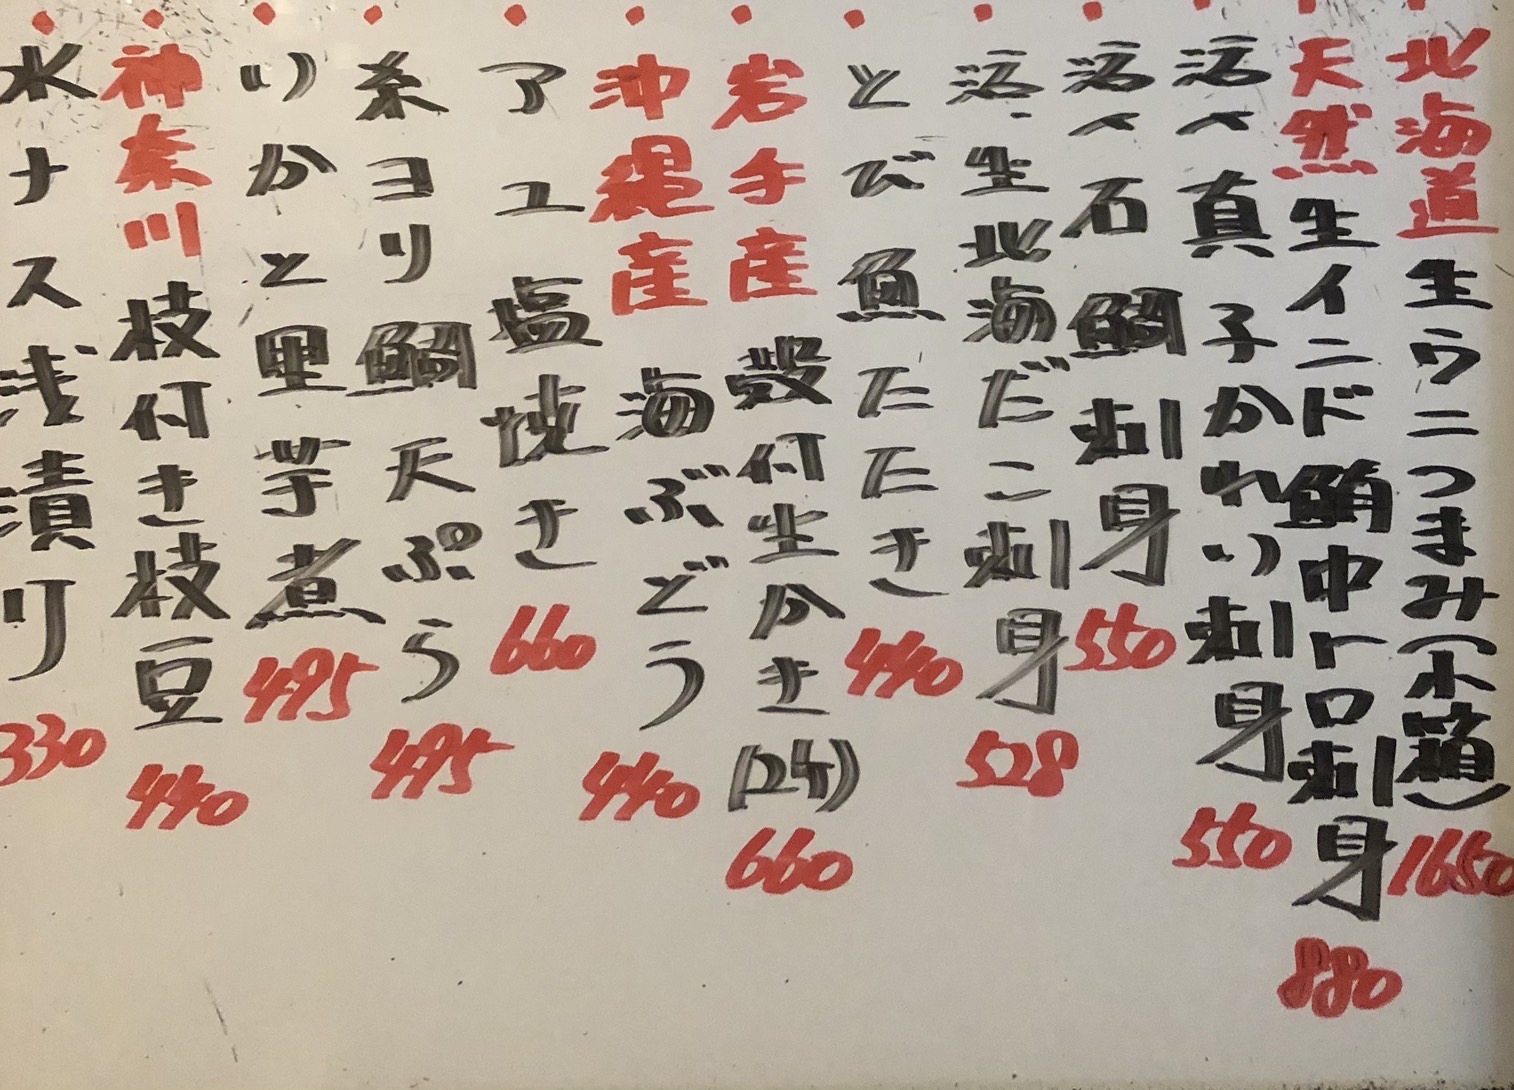 北海道生ウニつまみ(小箱)1650
天然生インド鮪中トロ刺身880
活〆真子かれい刺身550
活〆石鯛刺身550
活・生北海だこ刺身528
とび魚たたき440
岩手産殻付生かき(2ケ)660
沖縄産海ぶどう440
アユ塩焼き660
糸ヨリ鯛天ぷら495
いかと里芋煮495
神奈川枝付き枝豆440
水ナス浅漬り330